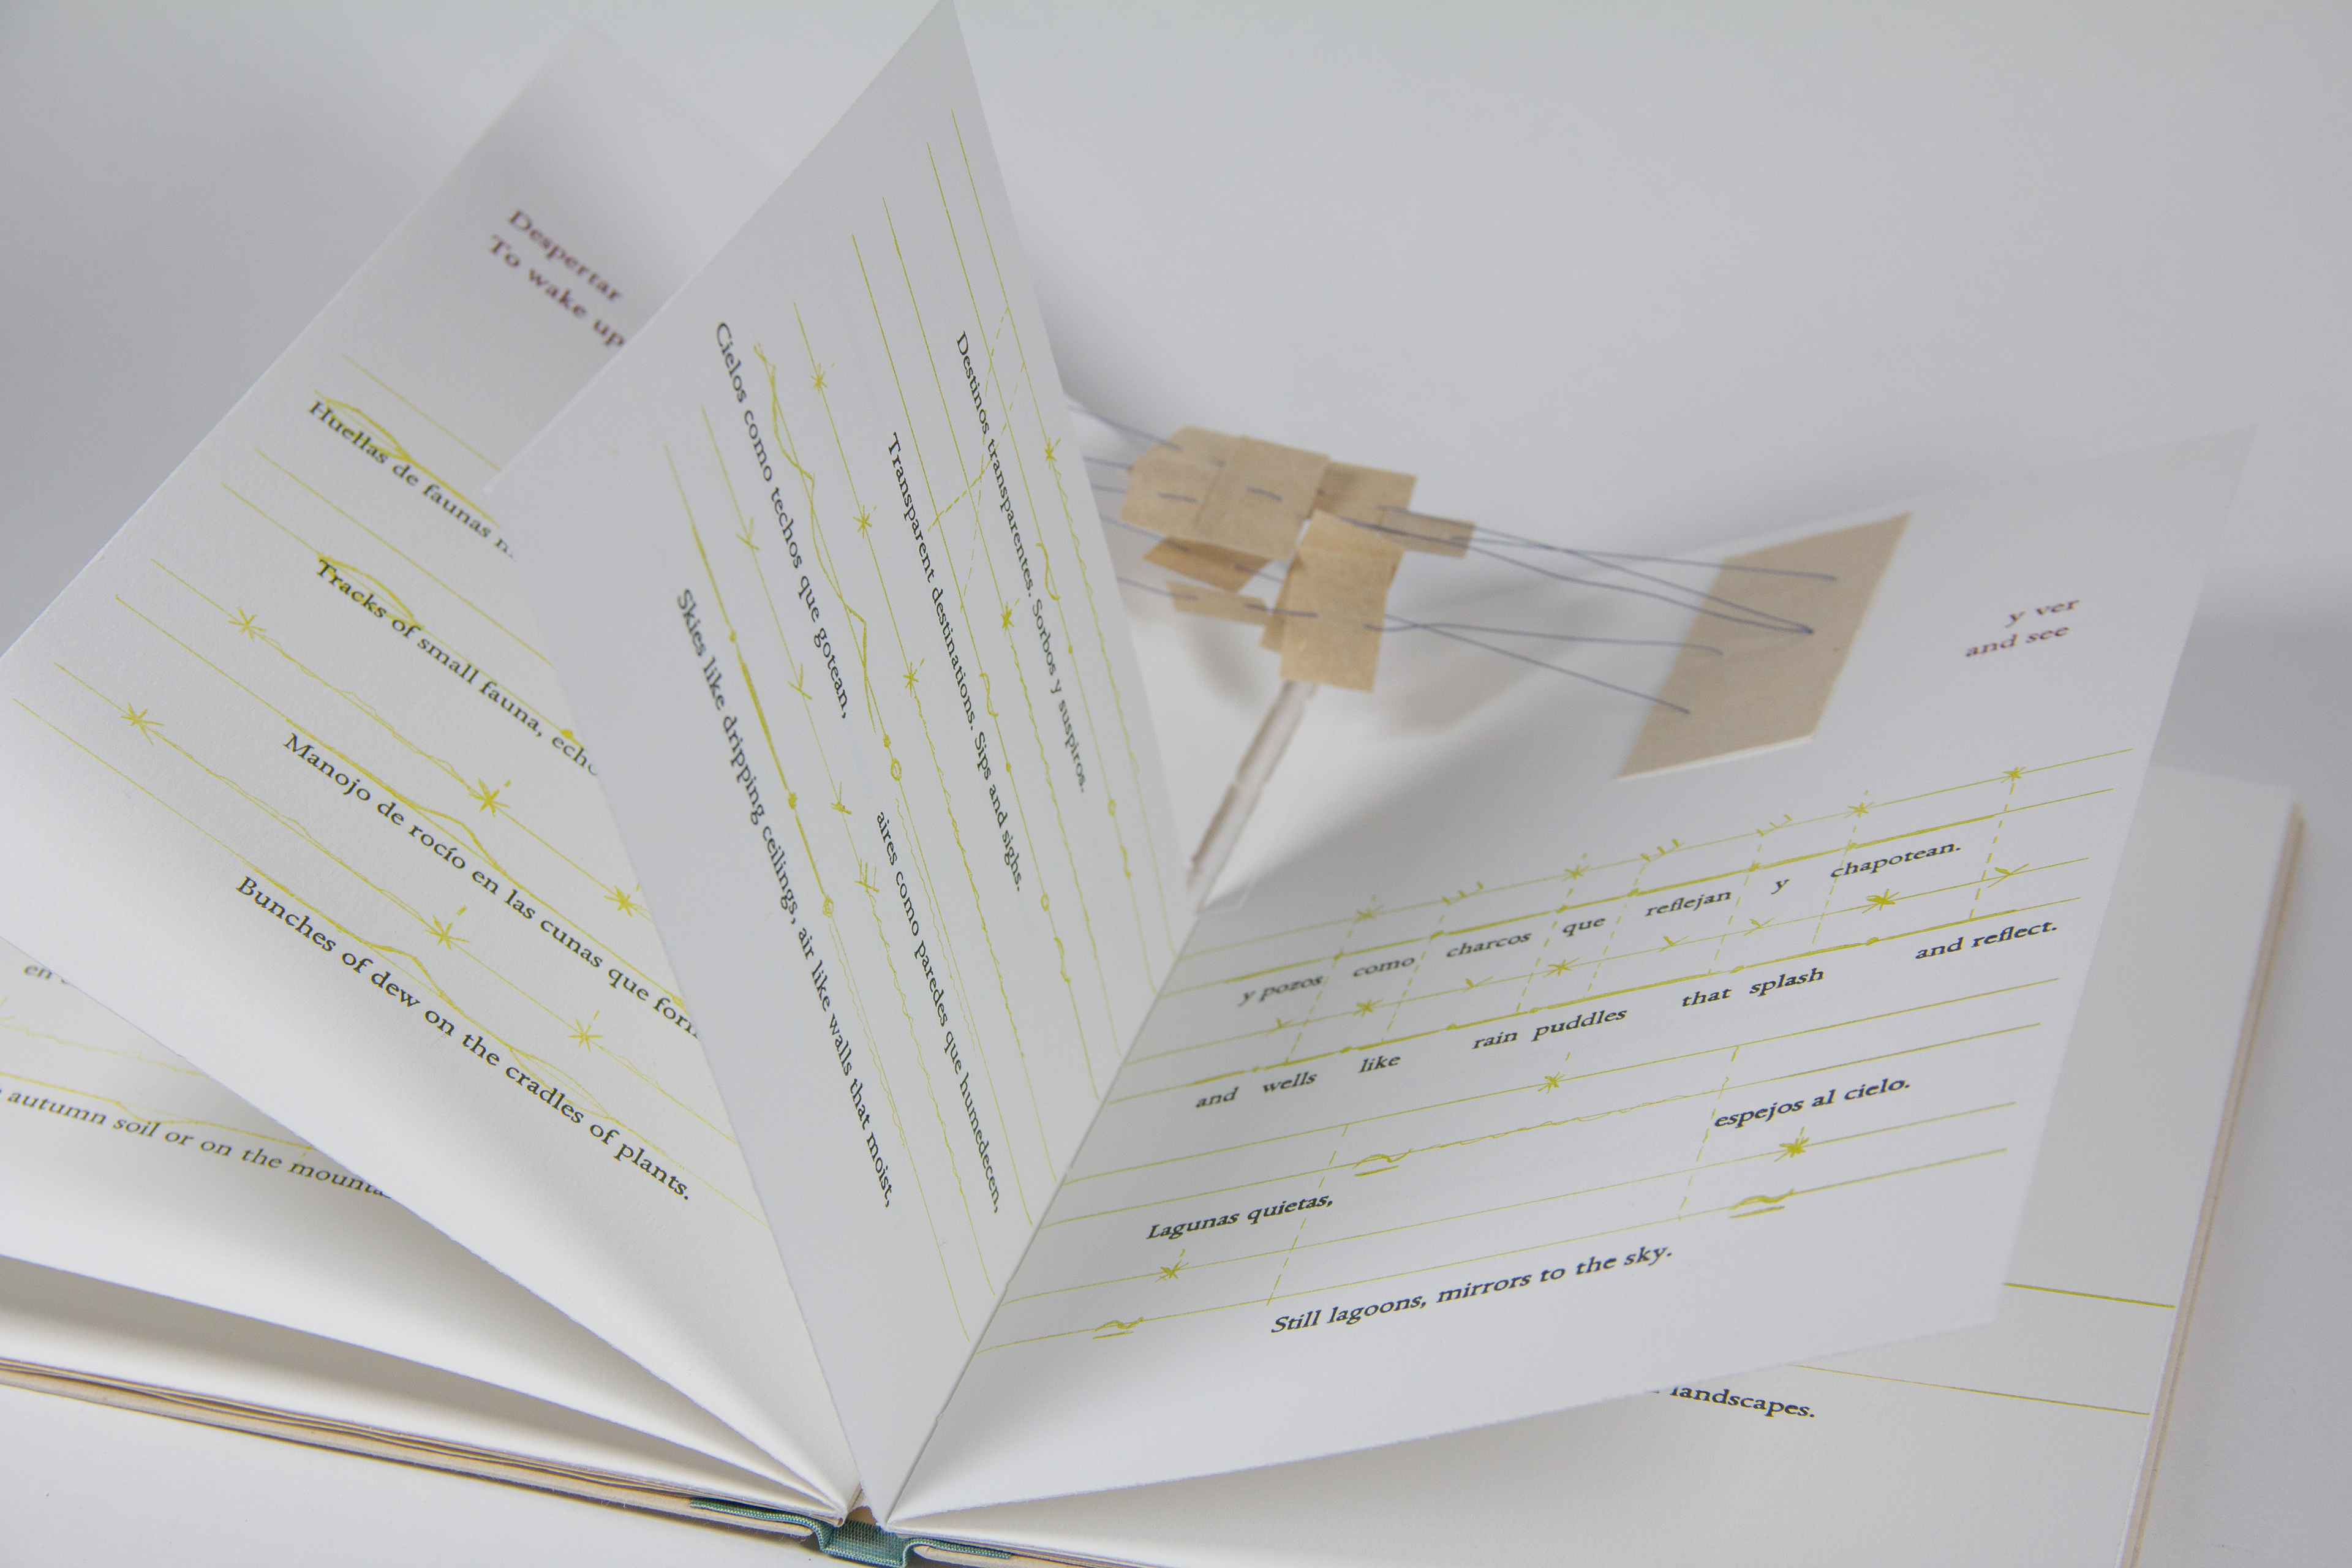 Despertar
To wake up
Huellas de faunas
Tracks of small fauna,
Manojo de rocío en las cunas que
Bunches of dew on the cradles of plants.
autumn soil or on the
Destinos transparentes. Sorbos y suspiros.
Transparent destinations. Sips and sighs.
Cielos como techos que gotean,
aires como paredes que humedecen,
Skies like dripping ceilings, air like walls that moist,
y ver
and see
y pozos como charcos que reflejan y chapotean.
and wells like rain puddles that splash and reflect.
Lagunas quietas, espejos al cielo.
Still lagoons, mirrors to the sky.
landscapes.